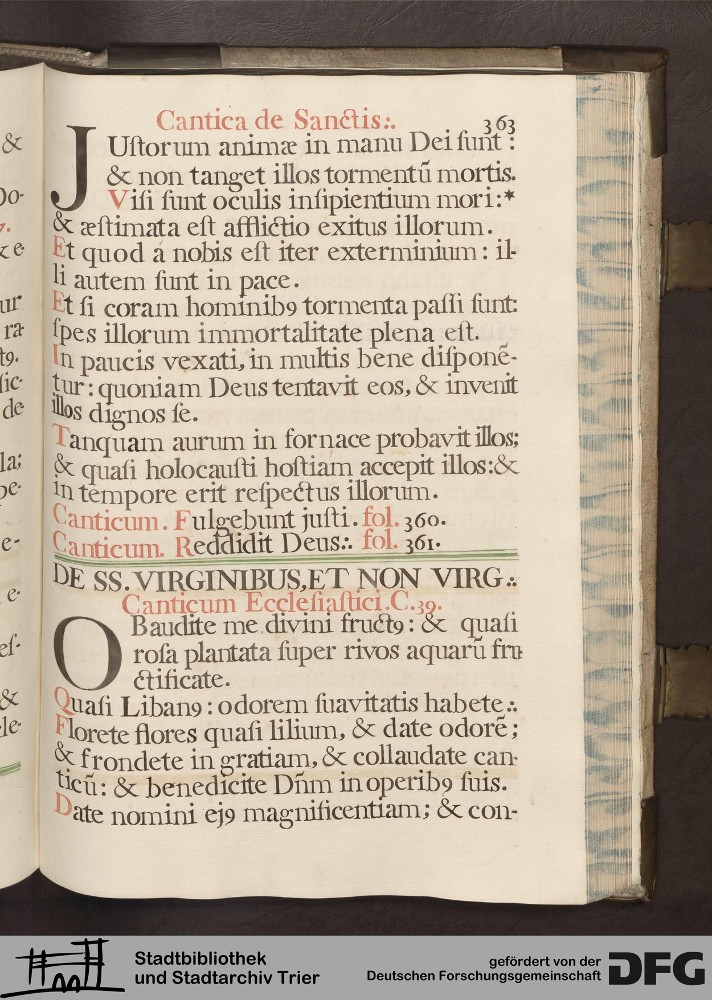 Cantica de Sanctis:.
363
JUſtorum animæ in manu Dei ſunt :
& non tanget illos tormentū mortis.
Viſi ſunt oculis inſipientium mori:*
& æſtimata eſt afflictio exitus illorum.
Et quod á nobis eſt iter exterminium : il-
li autem ſunt in pace.
Et ſi coram hominibꝯ tormenta paſſi ſunt:
ſpes illorum immortalitate plena eſt.
In paucis vexati, in multis bene diſponē-
tur: quoniam Deus tentavit eos, & invenit
illos dignos ſe.
Tanquam aurum in fornace probavit illos;
& quaſi holocauſti hoſtiam accepit illos:&
in tempore erit reſpectus illorum.
Canticum. Fulgebunt juſti. fol. 360.
Canticum. Reddidit Deus:. fol. 361.
DE SS. VIRGINIBUS, ET NON VIRG:.
Canticum Eccleſiaſtici. C. 39.
OBaudite me divini fructꝯ : & quaſi
roſa plantata ſuper rivos aquarū fru
ctificate.
Quaſi Libanꝯ : odorem ſuavitatis habete:.
Florete flores quaſi lilium, & date odorē;
& frondete in gratiam, & collaudate can-
ticū: & benedicite Dn̄m in operibꝯ ſuis.
Date nomini ejꝯ magnificentiam; & con-
&
Do-
&e
ur
ra
tꝯ.
ſic-
de
la;
pe-
e-
e-
eſ-
&
le-
Stadtbibliothek
und Stadtarchiv Trier
gefördert von der
Deutschen Forschungsgemeinschaft
DFG